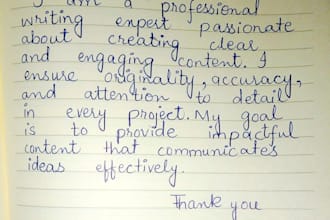 I am a professional
writing expert passionate
about creating clear
and engaging content. I
ensure originality, accuracy,
and attention to detail
in every project. My goal
is to provide impactful
content that communicates
ideas effectively.
Thank you